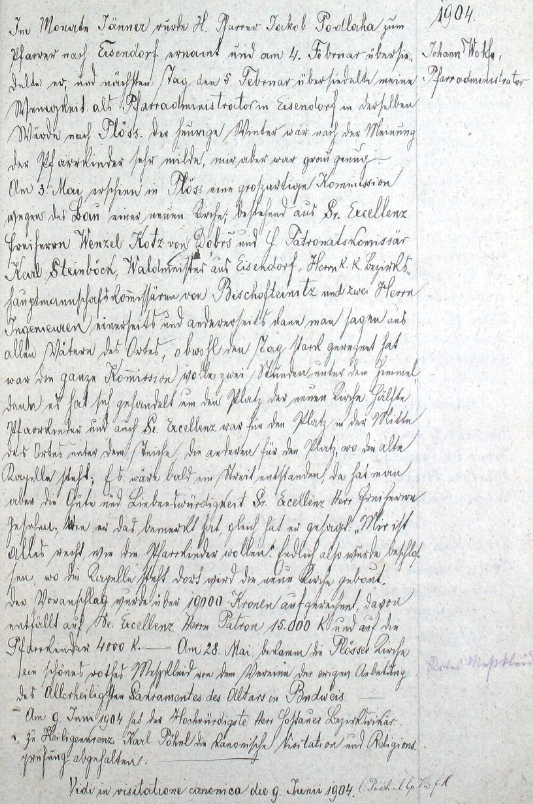 1904.
Im Monate Jänner wurde H. Pfarrer Jakob Podlaha zum
Pfarrer nach Eisendorf ernannt und am 4. Februar übersie-
Johann
delte er, und nächsten Tag den 5 Februar übersiedelte meine
Pfarradministrator
Wenigkeit als Pfarradministrator in Eisendorf in derselben
Würde nach Plöss. Der heurige Winter war nach der Meinung
der Pfarrkinder sehr milde, mir aber war grom genug. —
Am 3. Mai erschien in Plöss eine großartige Kommission
wegen des Bau einer neuen Kirche, bestehend aus Sr. Excellenz
Freiherrn Wenzel Kotz von Dobrš und H. Patronatskomissär
Karl Steinböck, Waldmeister aus Eisendorf, Herrn k. k. Bezirks-
hauptmannschaftskomissärn von Bischofteinitz und zwei Herrn
Ingenieuren einerseits und andererseits kann man sagen aus
allen Vätern des Ortes, obwohl den Tag stark geregnet hat
war die ganze Kommission volle zwei Stunden unter dem Himmel
denn es hat sich gehandelt um den Platz der neuen Kirche. Hälfte
Pfarrkinder und auch Sr. Excellenz war für den Platz in der Mitte
des Ortes unter dem Teiche die anderen für den Platz, wo die alte
Kapelle steht; Es wäre bald ein Streit entstanden da hat man
aber die Güte und Liebenswürdigkeit Sr. Excellenz Herr Freiherrn
gesehen; Wie er das bemerkt hat gleich hat er gesagt: „Mir ist
Alles recht wie die Pfarrkinder wollen." Endlich also wurde beschlos-
sen, wo die Kapelle steht dort werd die neue Kirche gebaut.
Der Voranschlag wurde über 19000 Kronen aufgerechnet, davon
entfällt auf Sr. Excellenz Herrn Patron 15.000 K und auf die
Pfarrkinder 4000 K. — Am 28. Mai bekam die Plösser Kirche
ein schönes rothes Messkleid von dem Vereine der ewigen Anbetung
Rotes Messkleid
des Allerheiligsten Sakramentes des Altars in Budweis. —
— Am 9. Juni 1904 hat der Hochwürdigste Herr Bezirksvikär
zu Heiligenkreuz Karl Pöhnl die kanonische Visitation und Religions-
prüfung abgehalten.
Vidi in visitatione canonica die 9. Junii 1904.